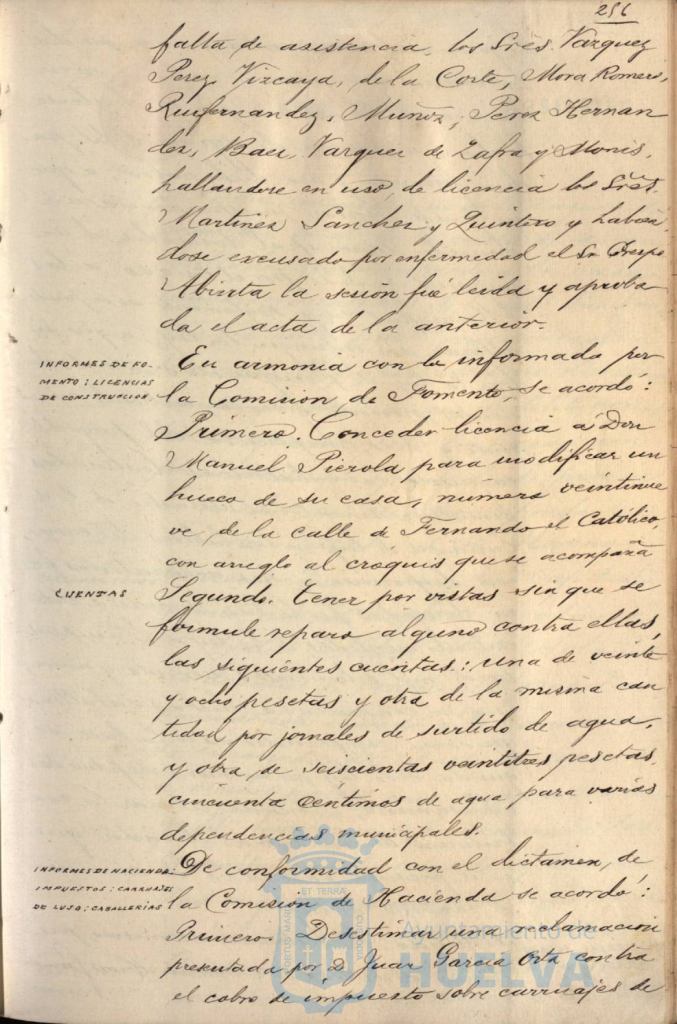 256
falta de asistencia, los Sres. Vazquez
Perez, Vizcaya, de la Corte, Mora Romero,
Ruifernandez, Muñoz, Perez Hernan
dez, Baez, Vazquez de Zafra y Monis,
hallandose en uso, de licencia los Sres.
Martinez Sanchez y Quintero y habien
dose excusado por enfermedad el Sr. Crespo
Abierta la sesión fué leida y aproba
da el acta de la anterior.
INFORMES DE FO-
MENTO: LICENCIAS
DE CONSTRUCCION.
En armonia con lo informado por
la Comision de Fomento, se acordó:
Primero. Conceder licencia á Don
Manuel Pierola para modificar un
hueco de su casa, número veintinue
ve, de la calle de Fernando el Católico,
con arreglo al cróquis que se acompaña
CUENTAS
Segundo. Tener por vistas sin que se
formule reparo alguno contra ellas,
las siguientes cuentas: una de veinte
y ocho pesetas y otra de la misma can
tidad por jornales de surtido de agua,
y otra de seiscientas veintitres pesetas,
cincuenta céntimos de agua para varias
dependencias municipales.
INFORMES DE HACIENDA:
IMPUESTOS: CARRUAJES
DE LUJO: CABALLERIAS
De conformidad con el dictamen, de
la Comision de Hacienda se acordó:
Primero. Desestimar una reclamacion
presentada por D. Juan Garcia Orta contra
el cobro de impuesto sobre carruajes de
ET TERRÆ
PORTUS MARIS
CUSTODIA
Ayuntamiento de
HUELVA